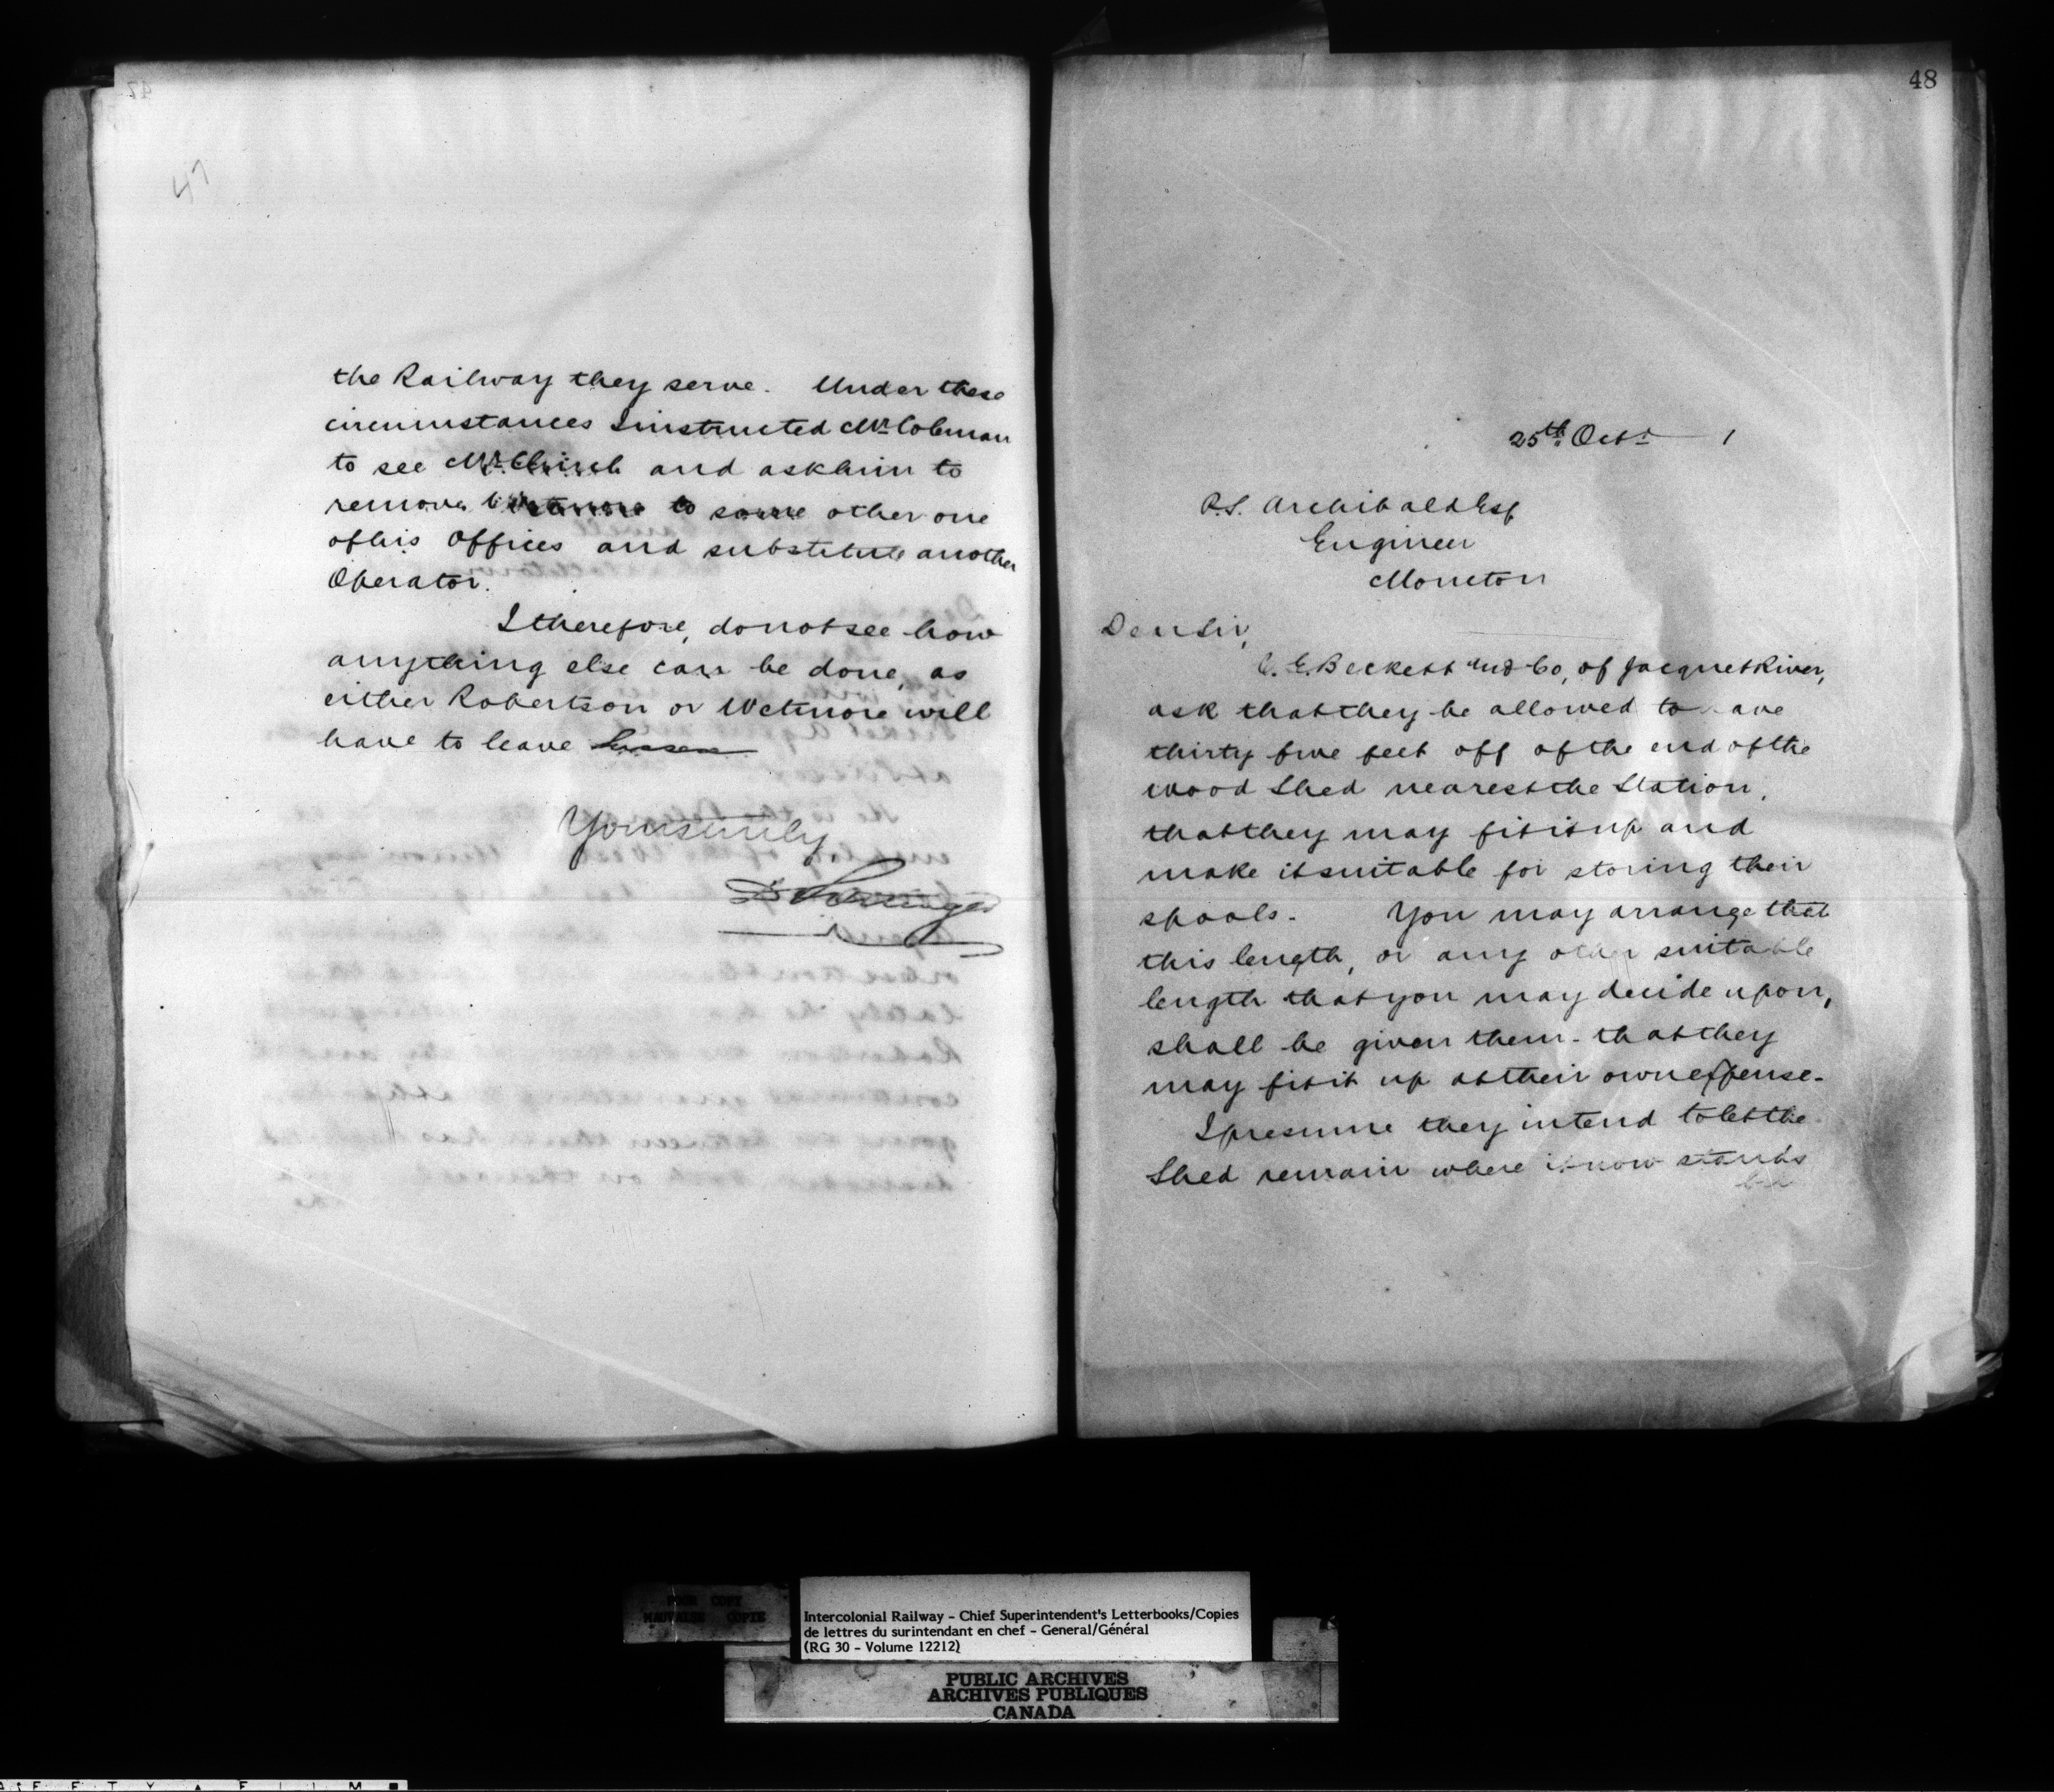 47
the Railway they serve. Under these
circumstances I instructed Mr. Coleman
to see Mr. Clinch and ask him to
remove Wetmore to some other one
of his Offices and substitute another
Operator.
I therefore, do not see how
anything else can be done, as
either Robertson or Wetmore will
have to leave Sussex
Yours truly
D Pottinger
48
25th Octr 1
P.S. Archibald Esq
Engineer
Moncton
Dear Sir,
C. E. Beckett and Co, of Jacquet River,
ask that they be allowed to have
thirty five feet off of the end of the
wood Shed nearest the Station,
that they may fit it up and
make it suitable for storing their
spools. You may arrange that
this length, or any other suitable
length that you may decide upon,
shall be given them - that they
may fit it up at their own expense.
I presume they intend to let the
Shed remain where it now stands
POOR COPY
MAUVAISE COPIE
Intercolonial Railway - Chief Superintendent's Letterbooks/Copies
de lettres du surintendant en chef - General/Général
(RG 30 - Volume 12212)
PUBLIC ARCHIVES
ARCHIVES PUBLIQUES
CANADA